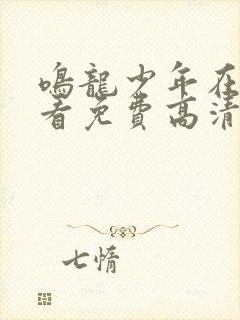 鸣龍少年在
看免費高清
七惰